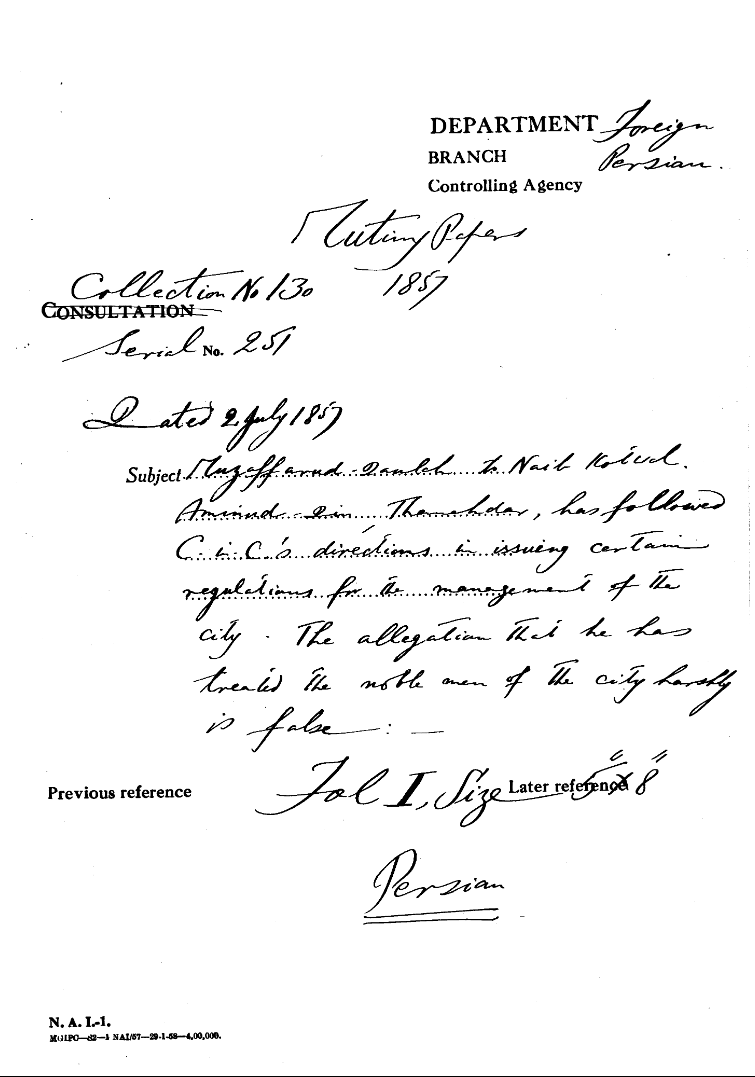 DEPARTMENT Foreign
BRANCH Persian.
Controlling Agency
Mutiny Papers
Collection No 130 1857
CONSULTATION
Serial No. 251
Dated 2 July 1857
Subject Muzaffarud-Daulah to Naib Kotwal.
Aminud-Din, Thanahdar, has followed
C. in C.'s directions in issuing certain
regulations for the management of the
city. The allegation that he has
treated the noble men of the city harshly
is false: —
Previous reference Fol I, Size Later reference 5" x 8"
Persian
N. A. I.-1.
MGIPC—82—1 NAI/57—29-1-58—4,00,000.